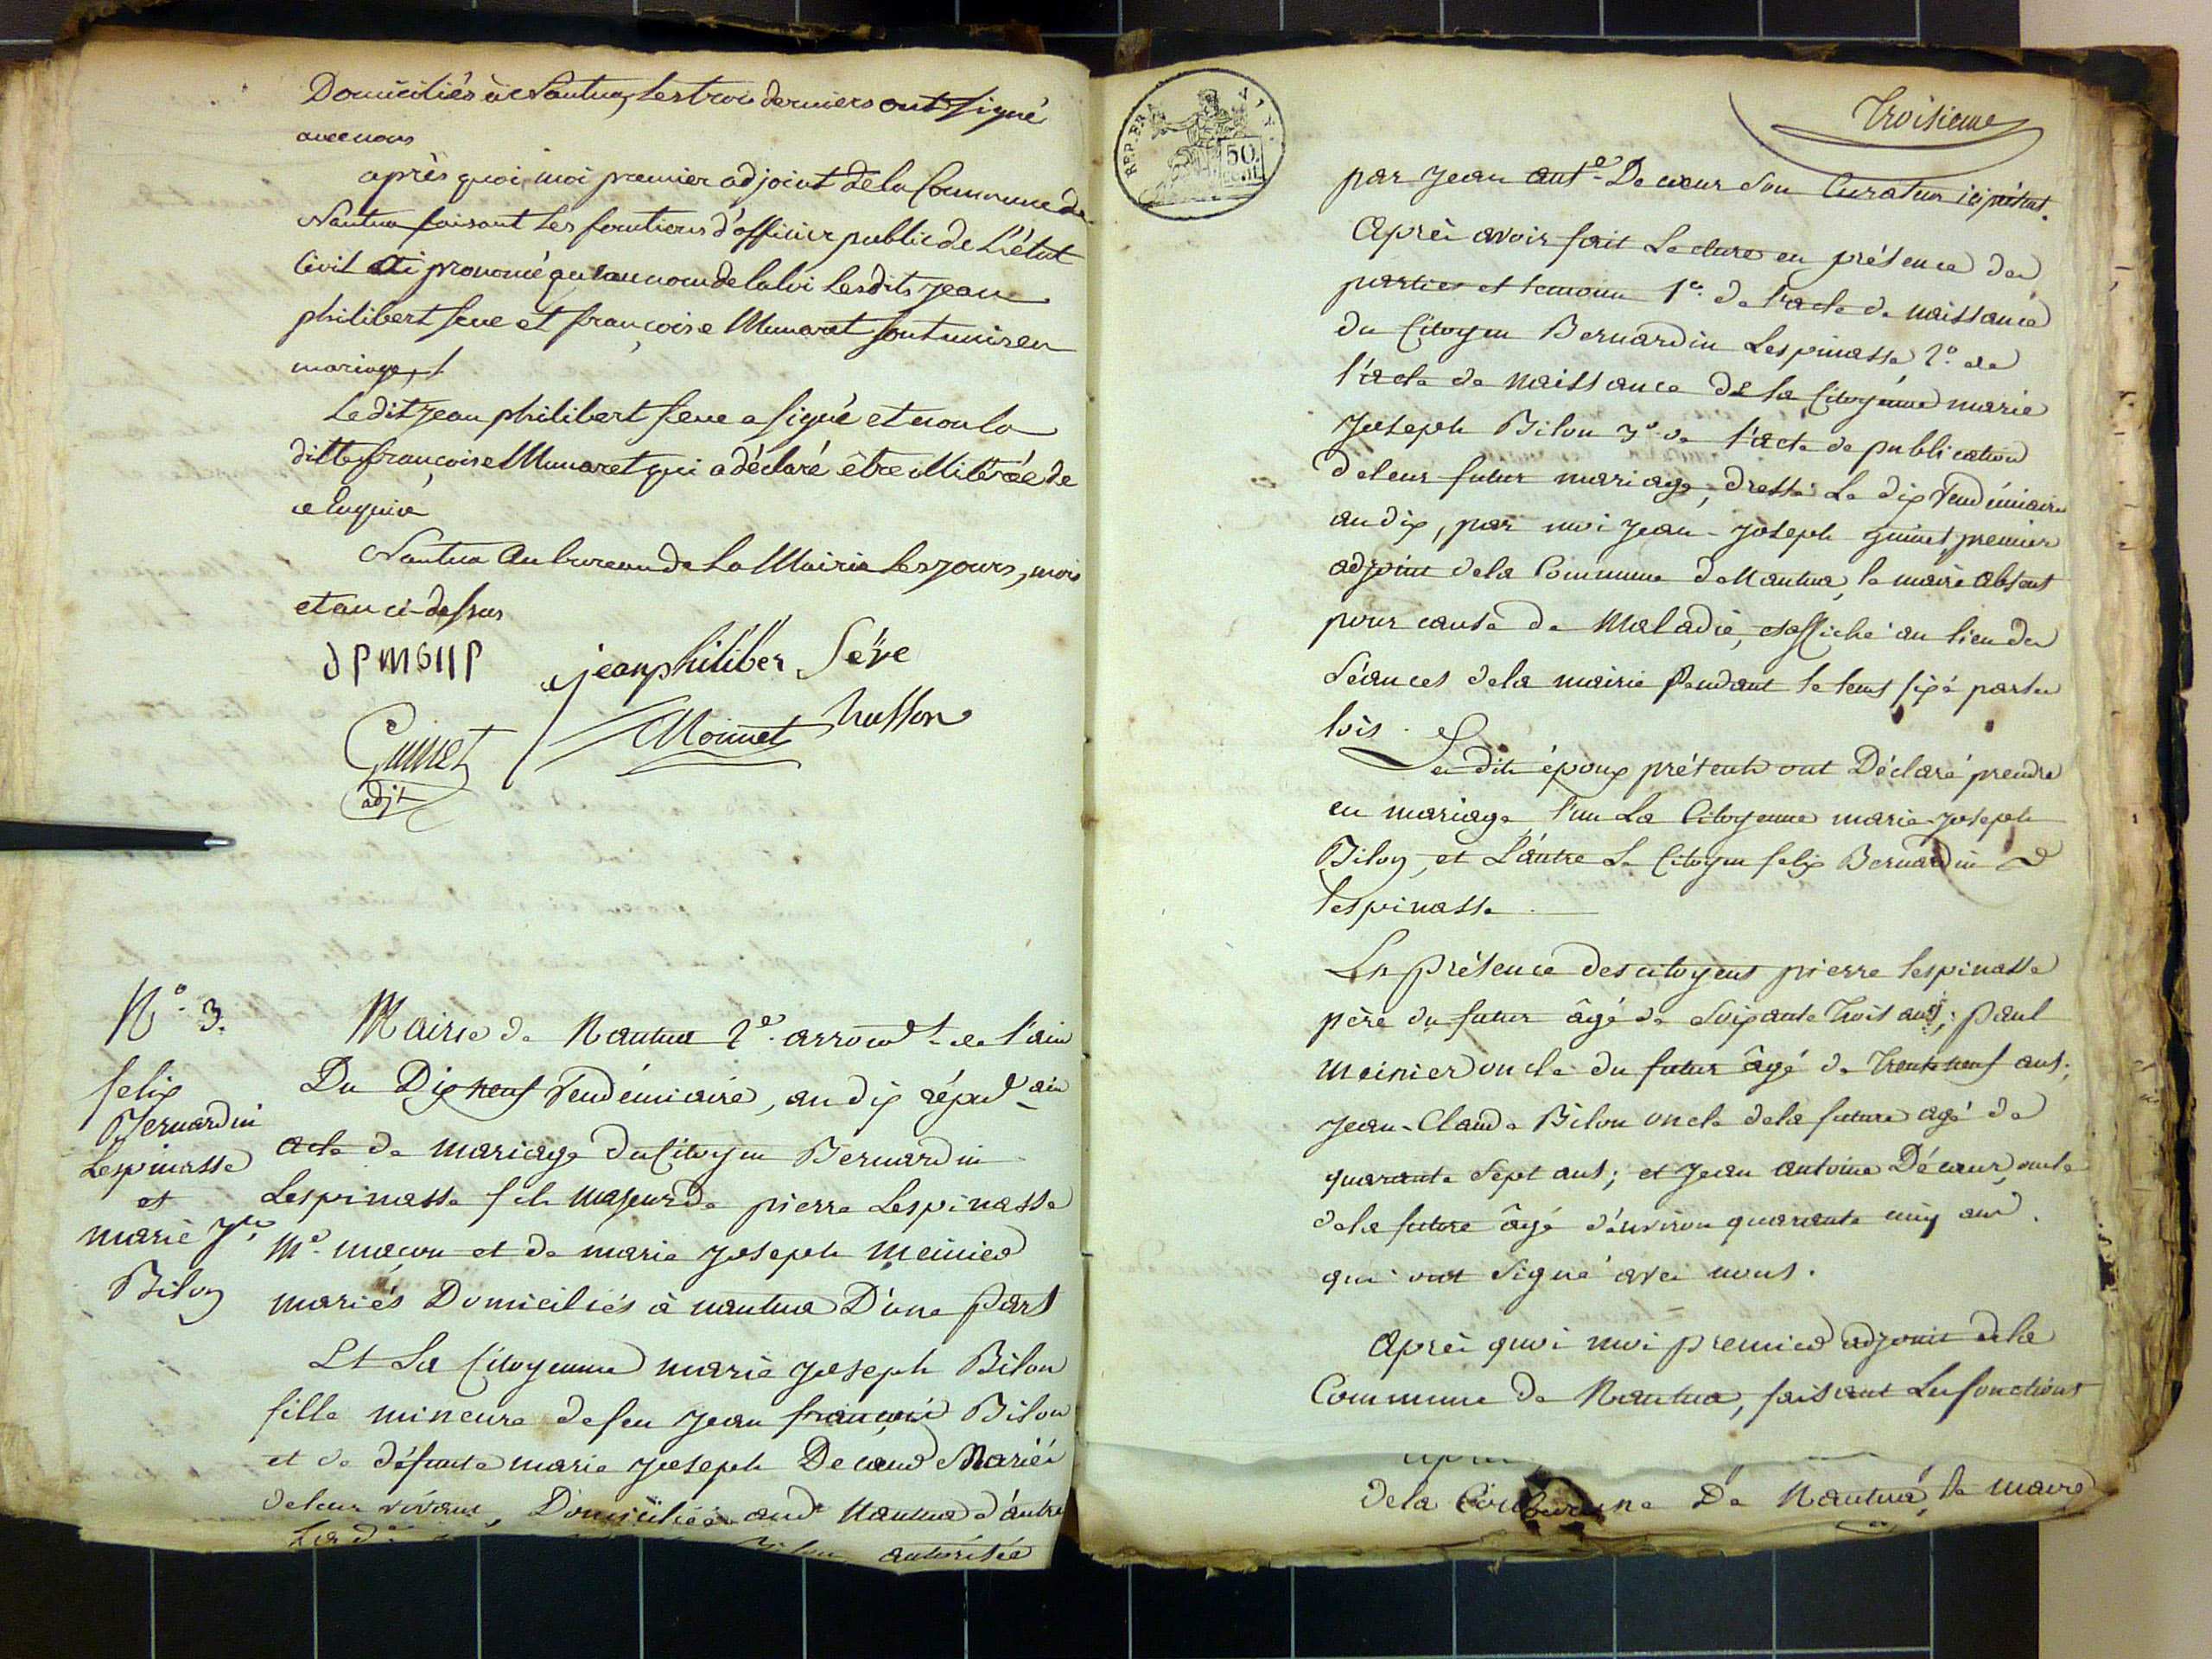 Domiciliés à Nantua, les trois derniers ont signé
avec nous
après quoi, moi premier adjoint de la Commune de
Nantua faisant les fonctions d'officier public de L'état
Civil ai prononcé qu'au nom de la loi lesdits jean
philibert Seve et françoise Munaret sont unis en
mariage,
Le dit jean philibert Seve a signé et non la
ditte françoise Munaret qui a déclaré être illitérée de
ce Enquise
Nantua Au bureau de La Mairie Les jours, mois
et an ci-dessus
jean philiber Séve
Guinet Monnet husson
adjt
N.º 3.
felix
Bernardin
Lespinasse
et
marie Jph
Bilon
Mairie de Nantua 2e. arrondt de l'ain
Du Dix neuf Vendémiaire, an dix républain
acte de mariage du Citoyen Bernardin
Lespinasse fils majeur de pierre Lespinasse
Me. maçon et de marie joseph meinier
mariés Domiciliés à nantua D'une part
Et La Citoyenne marie joseph Bilon
fille mineure de feu jean françois Bilon
et de défunte marie joseph Decœur Mariés
de leur vivant, Domiciliée audt Nantua d'autre
Bilon autorisée
REP. FRA
50.
cent.
Troisieme
par jean ante. Decœur son Curateur ici présent.
Après avoir fait Lecture en présence des
parties et temoins 1º. de l'acte de naissance
du Citoyen Bernardin Lespinasse, 2º. de
l'acte de naissance de la Citoyenne marie
joseph Bilon 3º. de l'acte de publication
de leur futur mariage, dressé Le dix Vendémiaire
an dix, par moi jean-joseph guinet, premier
adjoint de la Commune de Nantua, le maire absent
pour cause de Maladie, et affiché au lieu des
séances de la mairie Pendant le tems fixé par les
lois.
Lesdits époux présents ont Déclaré prendre
en mariage l'un La Citoyenne marie-joseph
Bilon, et L'autre Le Citoyen felix Bernardin
lespinasse.
En présence des citoyens pierre lespinasse
père du futur âgé de soixante trois ans; paul
meinier oncle du futur âgé de trente neuf ans;
jean-Claude Bilon oncle de la future agé de
quarante sept ans; et jean antoine Décœur, oncle
de la future âgé d'environ quarante cinq ans.
qui ont signé avec nous.
Après quoi moi premier adjoint de la
Commune de Nantua, faisant Les fonctions
de la Commune De Nantua, le maire